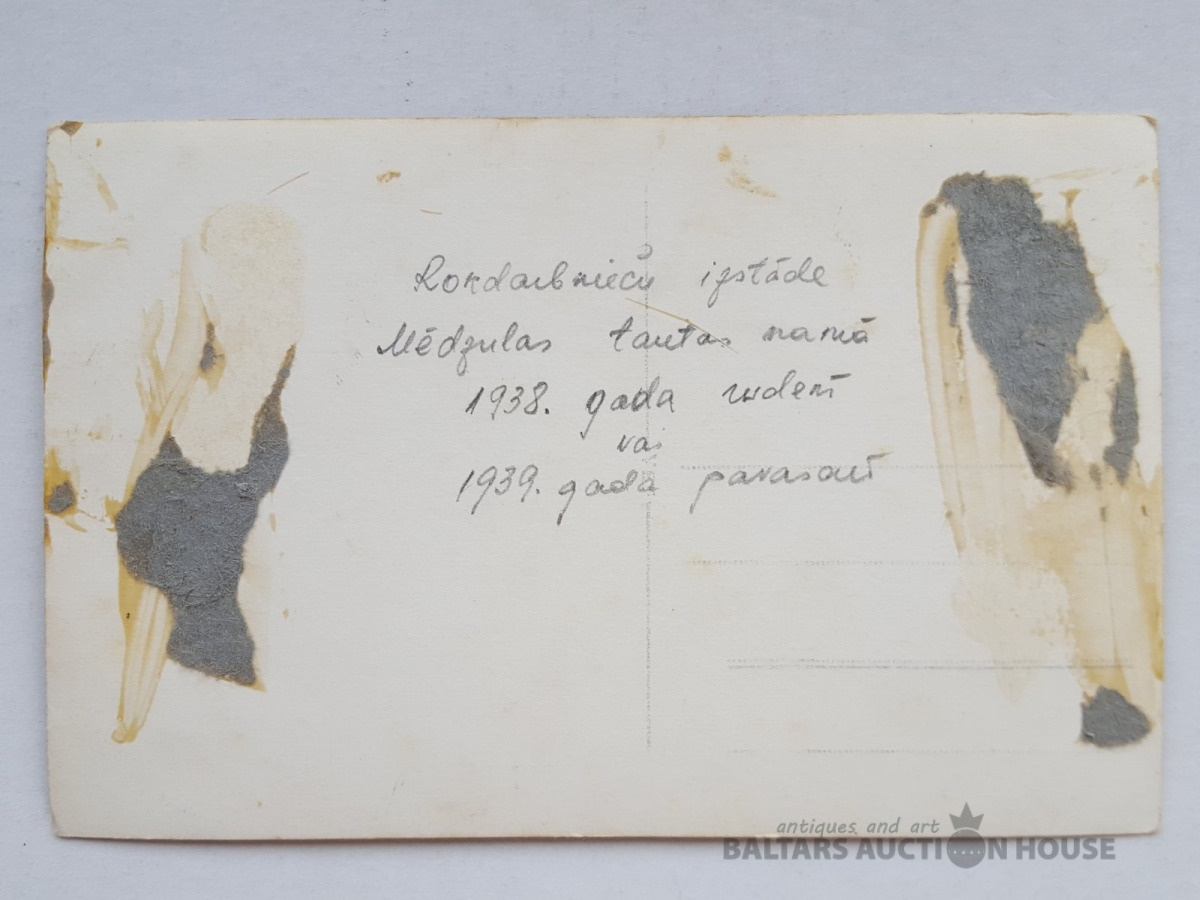 Rokdarbnieču izstāde
Mēdzulas tautas namā
1938. gada rudenī
vai
1939. gada pavasarī
antiques and art
BALTARS AUCTION HOUSE